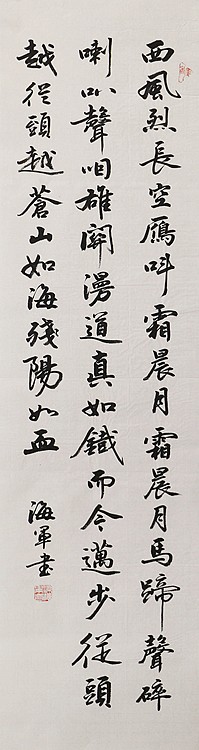 西風烈長空鴈呌霜晨月霜晨月馬蹄聲碎
喇叭聲咽雄關漫道真如鐵而今邁步從頭
越從頭越蒼山如海殘陽如血
海軍書